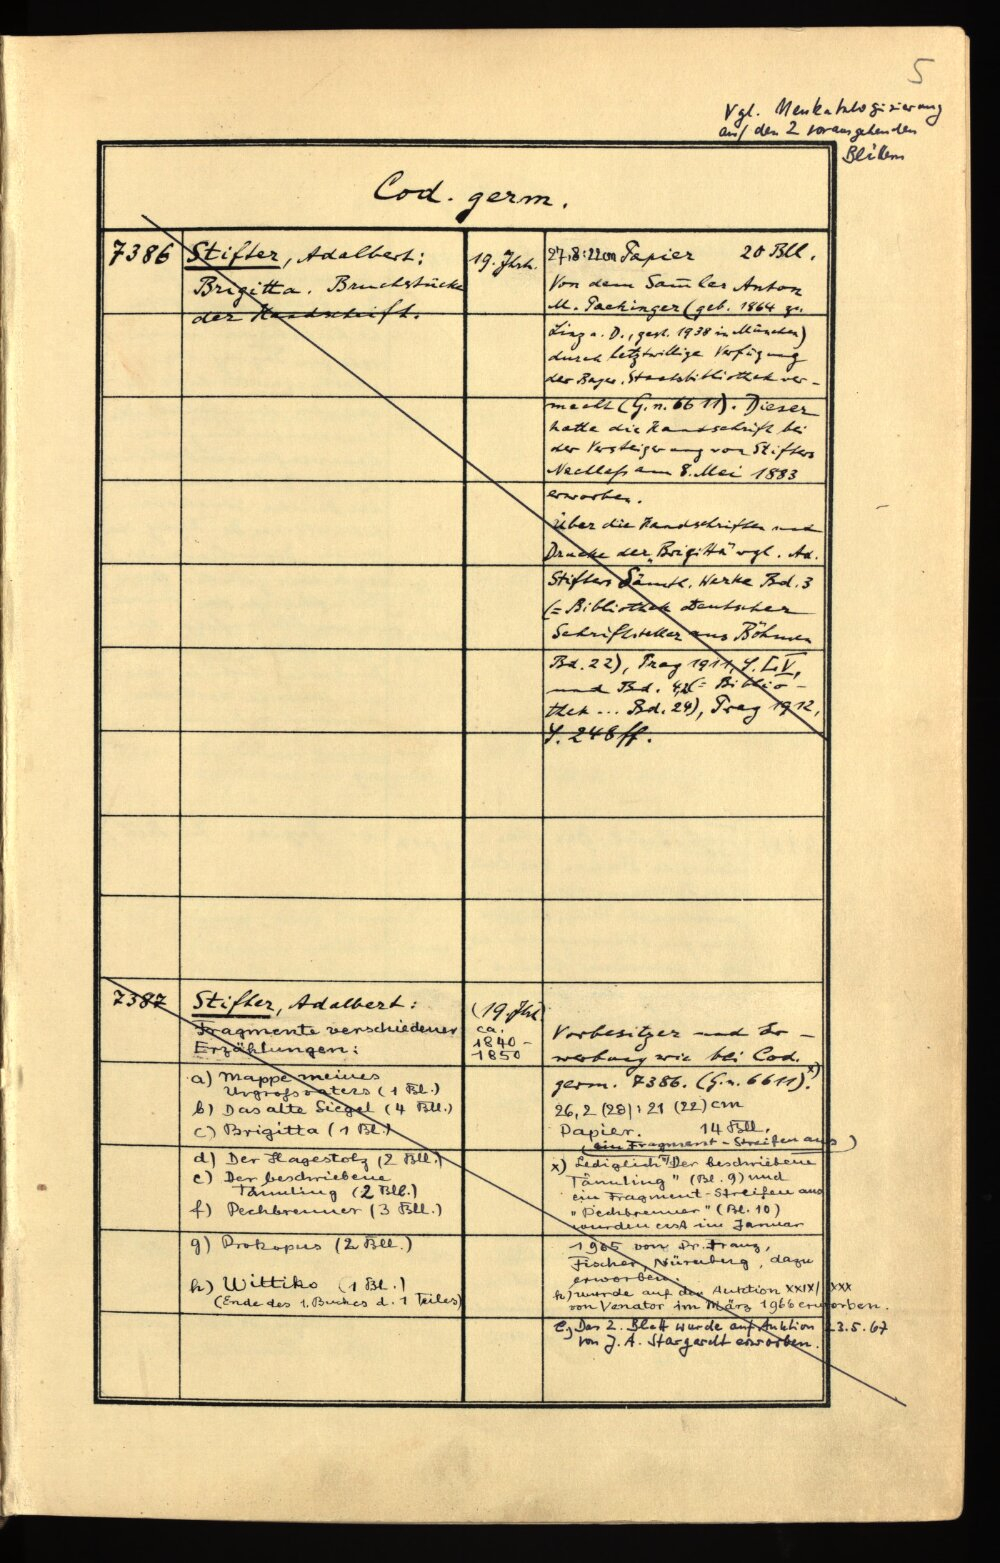 5
Vgl. Neukatalogisierung
auf den 2 vorausgehenden
Blättern
Cod. germ.
7386
Stifter, Adalbert:
Brigitta. Bruchstücke
der Handschrift.
19. Jhrh.
27,8:22cm Papier 20 Bll.
Von dem Sam̄ler Anton
M. Pachinger (geb. 1864 zu
Linz a. D., gest. 1938 in München)
durch letztwillige Verfügung
der Bayer. Staatsbibliothek ver-
macht (G.n. 6611). Dieser
hatte die Handschrift bei
der Versteigerung von Stifters
Nachlaß am 8. Mei 1883
erworben.
Über die Handschriften und
Drucke der „Brigitta" vgl. Ad.
Stifters Sämtl. Werke Bd. 3
(= Bibliothek Deutscher
Schriftsteller aus Böhmen
Bd. 22), Prag 1911, S. LV,
und Bd. 4,2 (= Biblio-
thek ... Bd. 24), Prag 1912,
S. 246 ff.
7387
Stifter, Adalbert:
Fragmente verschiedener
Erzählungen:
a) Mappe meines
Urgrossvaters (1 Bl.)
b) Das alte Siegel (4 Bll.)
c) Brigitta (1 Bl.)
d) Der Hagestolz (2 Bll.)
e) Der beschriebene
Tännling (2 Bll.)
f) Pechbrenner (3 Bll.)
g) Prokopus (2 Bll.)
h) Wittiko (1 Bl.)
(Ende des 1. Buches d. 1 Teiles)
(19. Jhrh.
ca.
1840-
1850
Vorbesitzer und Er-
werbung wie bei Cod.
germ. 7386. (G.n. 6611). x)
26,2 (28) : 21 (22) cm
Papier. 14 Bll.
(ein Fragment-Streifen aus)
x) Lediglich „Der beschriebene
Tännling" (Bl. 9) und
ein Fragment-Streifen aus
„Pechbrenner" (Bl. 10)
wurden erst im Januar
1965 von Dr. Franz,
Fischer, Nürnberg, dazu
erworben.
h) wurde auf der Auktion XXIX/XXX
von Venator im März 1966 erworben.
e) Das 2. Blatt wurde auf Auktion 23.5.67
von J. A. Stargardt erworben.